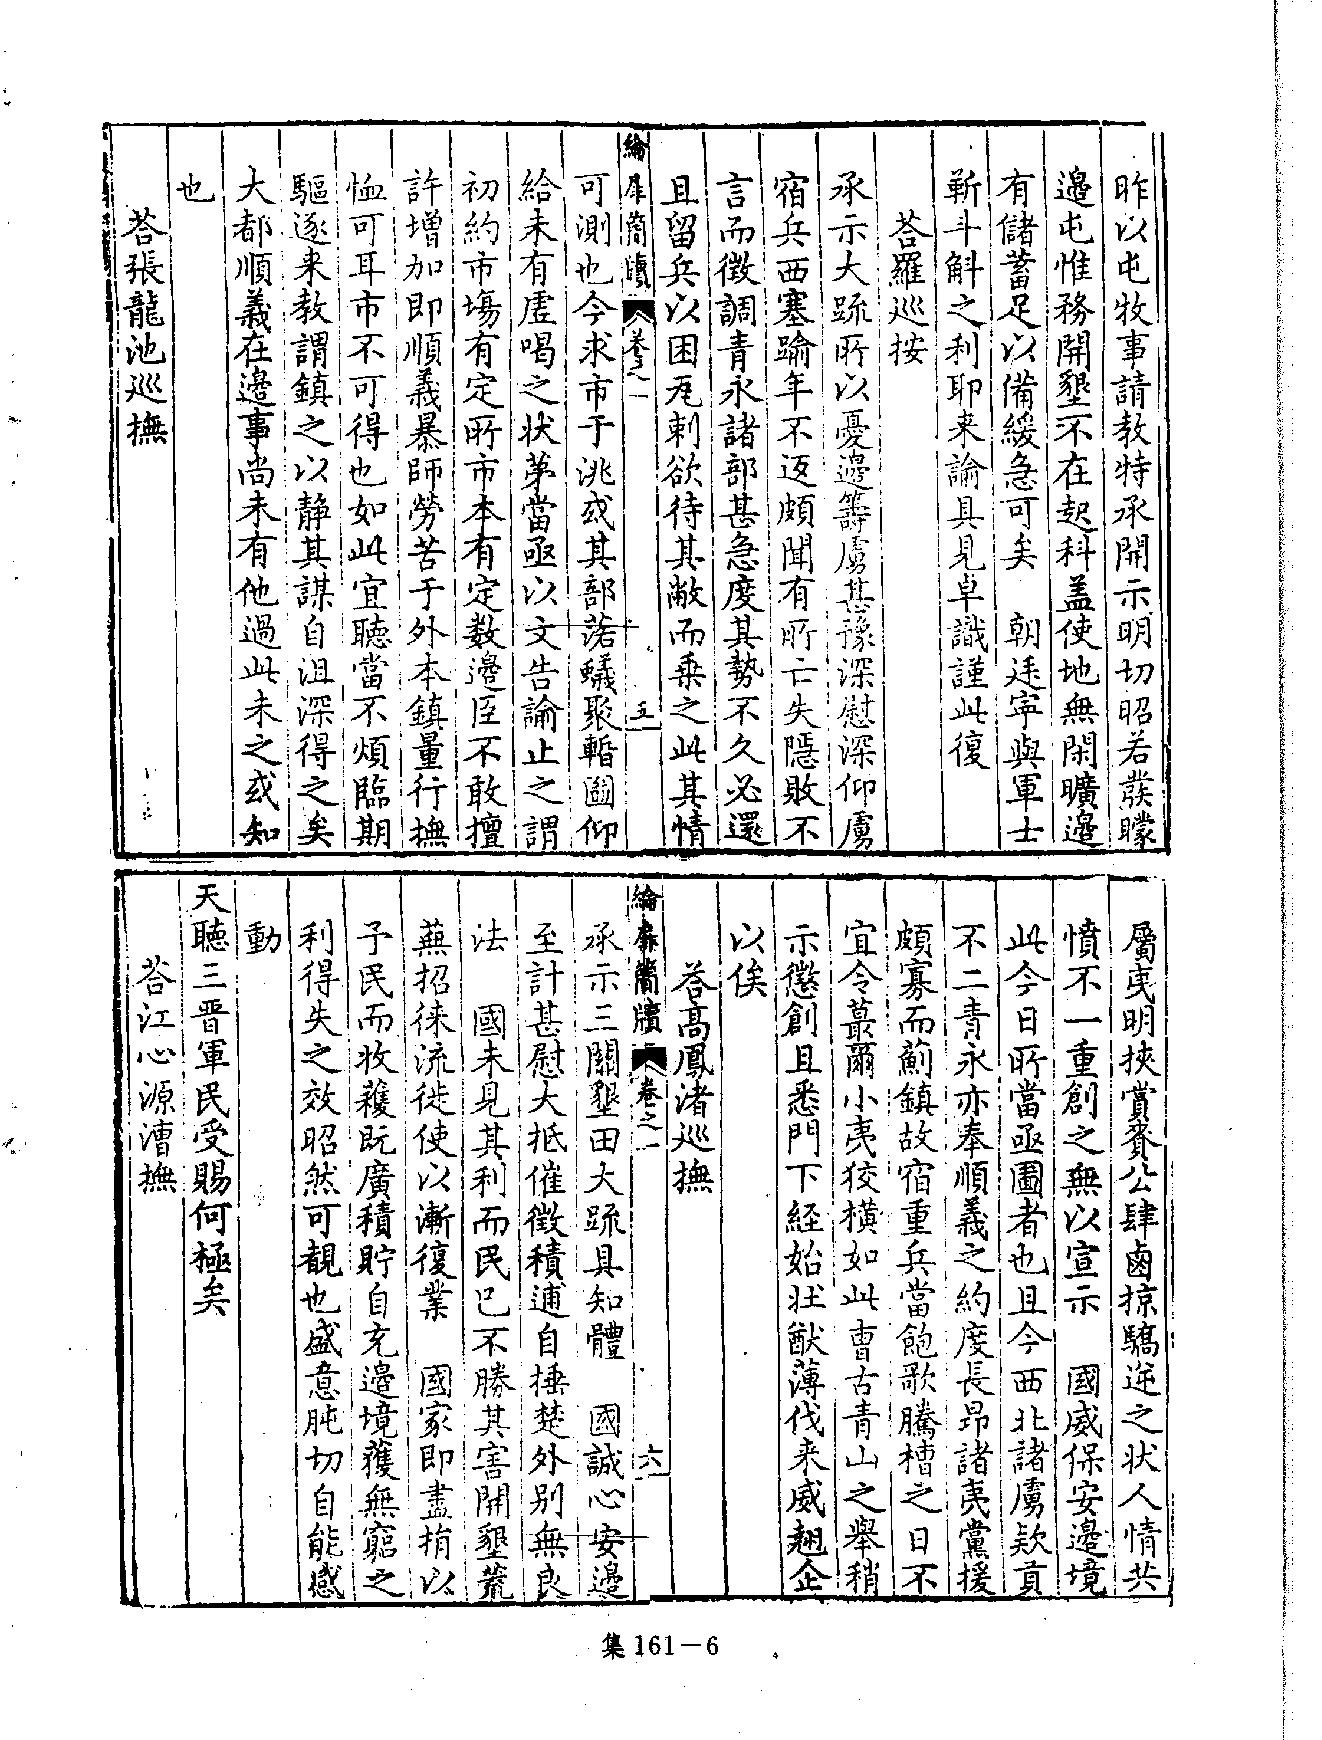 昨以屯牧事請教特承開示明切昭若發矇
邊屯惟務開墾不在起科盖使地無閑曠邊
有儲蓄足以備緩急可矣　朝廷寧與軍士
靳斗斛之利耶来諭具見卓識謹此復
荅羅巡按
承示大疏所以憂邊籌虜甚豫深慰深仰虜
宿兵西塞踰年不返頗聞有所亡失隱敗不
言而徵調青永諸部甚急度其勢不久必還
且留兵以困瓦剌欲待其敝而乗之此其情
綸扉簡牘　卷之一　五
可測也今求市于洮或其部落蟻聚暫圖仰
給未有虛喝之状苐當亟以文告諭止之謂
初約市塲有定所市本有定数邊臣不敢擅
許増加即順義暴師勞苦于外本鎮量行撫
恤可耳市不可得也如此宜聽當不煩臨期
驅逐来教謂鎮之以静其謀自沮深得之矣
大都順義在邊事尚未有他過此未之或知
也
荅張龍池巡撫
屬夷明挾賞賚公肆鹵掠驕逆之状人情共
憤不一重創之無以宣示　國威保安邊境
此今日所當亟圖者也且今西北諸虜欵貢
不二青永亦奉順義之約度長昂諸夷黨援
頗寡而薊鎮故宿重兵當飽歌騰槽之日不
宜令蕞爾小夷狡横如此曺古青山之舉稍
示懲創且悉門下経始壮猷薄伐来威翹企
以俟
荅髙鳳渚巡撫
綸扉簡牘　卷之一　六
承示三關墾田大疏具知體　國誠心安邊
至計甚慰大抵催徵積逋自捶楚外别無良
法　國未見其利而民已不勝其害開墾荒
蕪招徠流徙使以漸復業　國家即盡捐以
予民而收穫既廣積貯自充邊境獲無窮之
利得失之效昭然可覩也盛意肫切自能感
動
天聽三晋軍民受賜何極矣
荅江心源漕撫
集 161－6